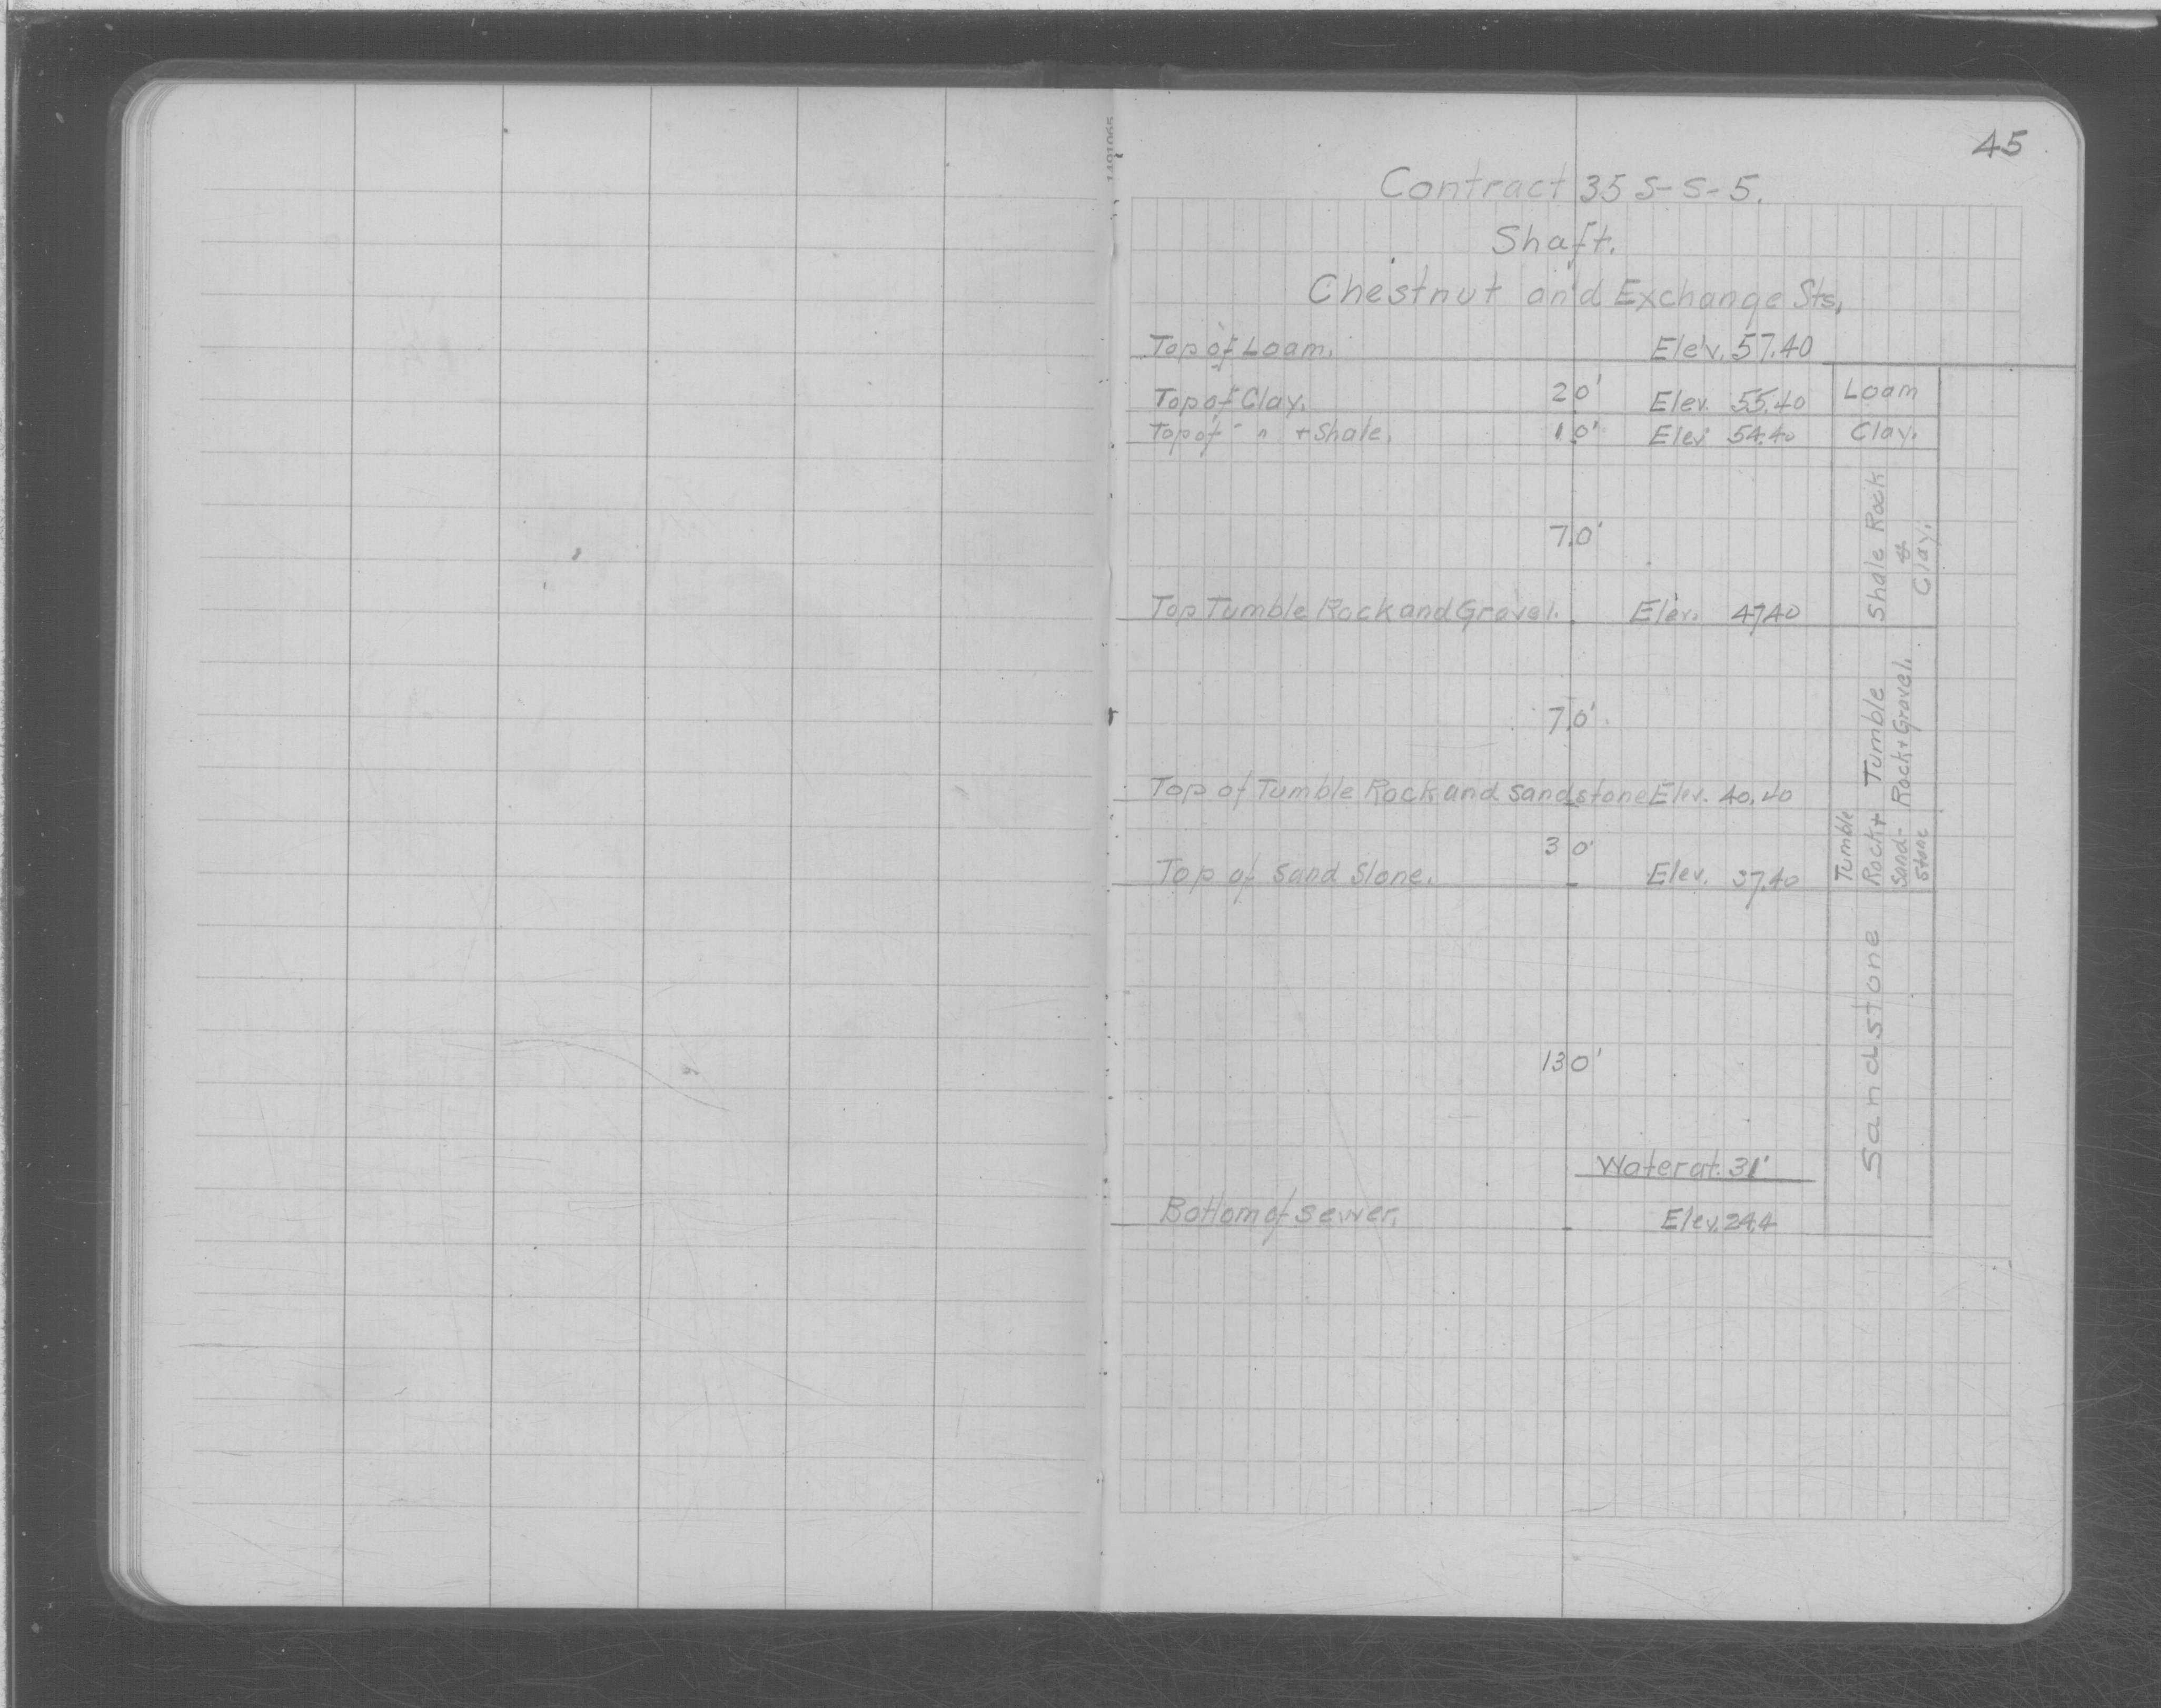 45
Contract 35 S-S-5.
Shaft.
Chestnut and Exchange Sts.
Top of Loam. Elev. 57.40
Top of Clay. 2.0' Elev. 55.40 Loam
Top of " " + Shale. 1.0' Elev. 54.40 Clay.
7.0' Shale Rock & Clay.
Top Tumble Rock and Gravel. Elev. 47.40
7.0' Tumble Rock + Gravel.
Top of Tumble Rock and Sandstone Elev. 40.40
3.0' Tumble Rock + Sand-stone
Top of Sand Stone. Elev. 37.40
13.0' Sandstone
Water at 31'
Bottom of Sewer. Elev. 24.4
1491065